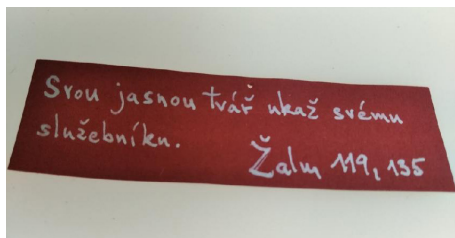 Svou jasnou tvář ukaž svému
služebníku.
Žalm 119, 135